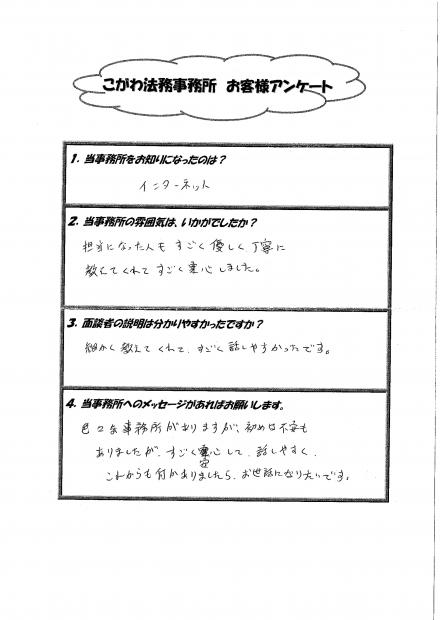 こがわ法務事務所 お客様アンケート
1. 当事務所をお知りになったのは?
インターネット
2. 当事務所の雰囲気は、いかがでしたか?
担当になった人も すごく優しく丁寧に
教えてくれて すごく安心しました。
3. 面談者の説明は分かりやすかったですか?
細かく教えてくれて、すごく話しやすかったです。
4. 当事務所へのメッセージがあればお願いします。
色々な事務所がありますが、初めは不安も
ありましたが、すごく安心して、話しやすく、
これからも何かありましたら、お世話になりたいです。